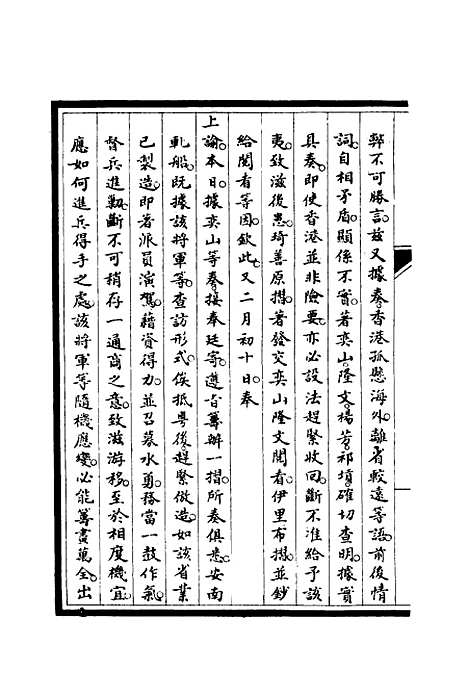 弊不可勝言。茲又據奏香港孤懸海外。離省較遠等語。前後情
詞。自相矛盾。顯係不實。著奕山。隆文。楊芳。祁𡎴。確切查明。據實
具奏。即使香港並非險要。亦必設法趕緊收回。斷不准給予該
夷。致滋後患。琦善原摺。著發交奕山隆文閱看。伊里布摺。並鈔
給閱看等因。欽此。又二月初十日奉
上諭。本日據奕山等奏。接奉廷寄。遵旨籌辦一摺。所奏俱悉。安南
軋船。既據該將軍等查訪形式。俟抵粵後。趕緊倣造。如該省業
已製造。即著派員演駕。藉資得力。並召募水勇。務當一鼓作氣。
督兵進勦。斷不可稍存一通商之意。致滋游移。至於相度機宜。
應如何進兵得手之處。該將軍等隨機應變。必能籌畫萬全。出